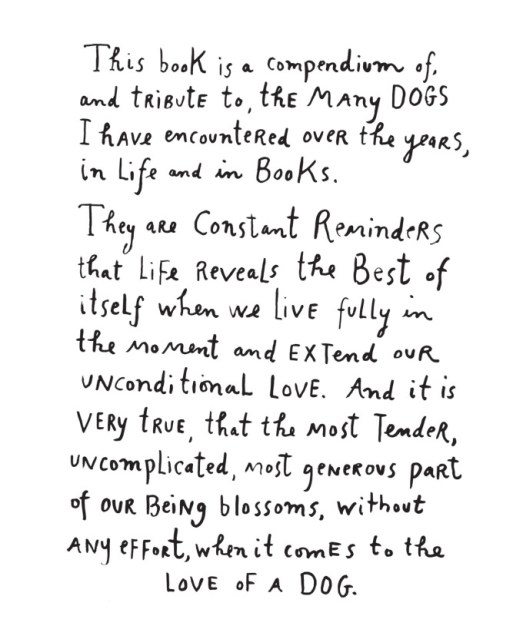 This book is a compendium of,
and tRiBUtE to, thE MAny DOGS
I hAve encounteRed oveR the yeaRS,
in Life and in BooKs.
They aRe Constant RemindeRS
that LiFe Reveals the Best of
itself when we LiVE fully in
the MoMent and EXTend ouR
UNconditionaL LoVE. And it is
VERy tRUE, that the most TendeR,
UNcomplicated, most geNERous paRt
of ouR BeiNg blossoms, without
ANy eFFoRt, when it comEs to the
LoVE oF A DOG.